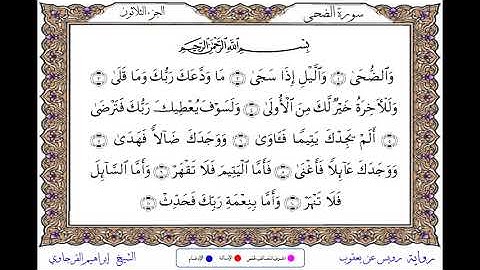 سورة الضحى
الجزء الثلاثون
بِسْمِ اللَّهِ الرَّحْمَٰنِ الرَّحِيمِ
وَالضُّحَىٰ ۝١ وَاللَّيْلِ إِذَا سَجَىٰ ۝٢ مَا وَدَّعَكَ رَبُّكَ وَمَا قَلَىٰ ۝٣
وَلَلْآخِرَةُ خَيْرٌ لَّكَ مِنَ الْأُولَىٰ ۝٤ وَلَسَوْفَ يُعْطِيكَ رَبُّكَ فَتَرْضَىٰ
۝٥ أَلَمْ يَجِدْكَ يَتِيمًا فَآوَىٰ ۝٦ وَوَجَدَكَ ضَالًّا فَهَدَىٰ ۝٧
وَوَجَدَكَ عَائِلًا فَأَغْنَىٰ ۝٨ فَأَمَّا الْيَتِيمَ فَلَا تَقْهَرْ ۝٩ وَأَمَّا السَّائِلَ
فَلَا تَنْهَرْ ۝١٠ وَأَمَّا بِنِعْمَةِ رَبِّكَ فَحَدِّثْ ۝١١
رواية رويس عن يعقوب
الإمالة
الإدغام
الشيخ إبراهيم القرجاوي